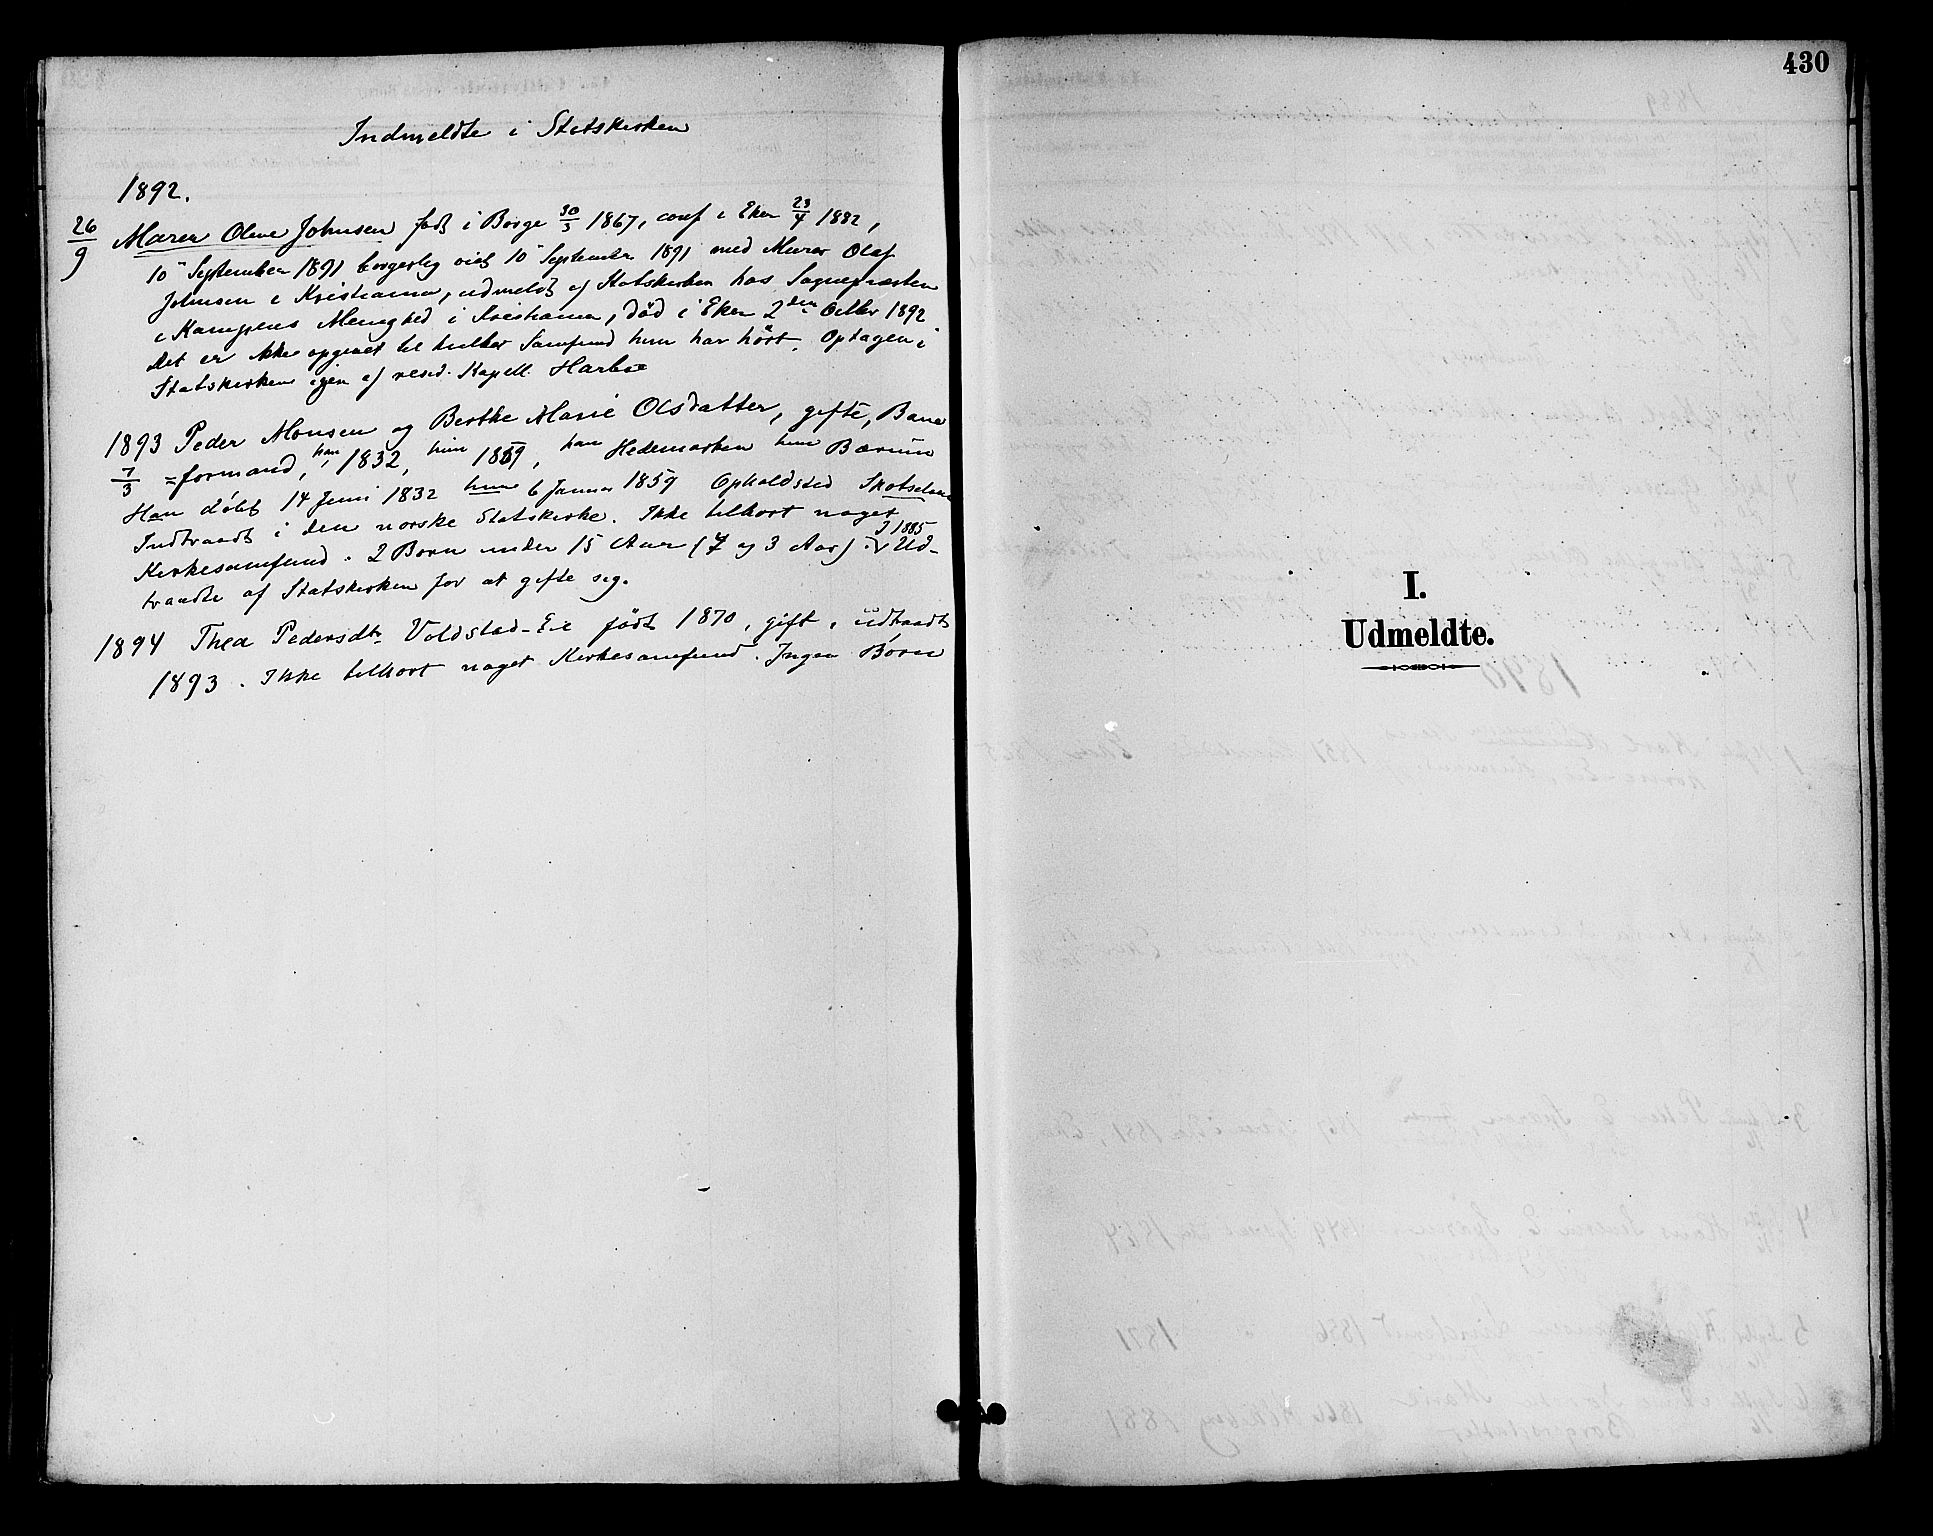 Indmeldte i Statskirken
1892.
26/9 Maren Oline Johnsen født i Borge 30/3 1867, conf i Eker 23/4 1882,
10 September 1891 borgerlig viet 10 September 1891 med Murer Olaf
Johnsen i Kristiania, udmeldt af Statskirken hos Sognepræsten
i Kampens Menighed i Kristiania, død i Eker 2den Octbr 1892
Det er ikke opgivet til hvilket Samfund hun har hört. Optagen i
Statskirken igjen af resid. Kapell. Harboe
1893 Peder Monsen og Berthe Marie Olsdatter, gifte, Bane
7/3 =formand, han 1832, hun 1859, han Hedemarken hun Bærum
Han döbt 14 Juni 1832 hun 6 Januar 1859 Opholdsted Skotselven
Indtraadt i den norske Statskirke. Ikke tilhort noget
Kirkesamfund. 2 Born under 15 Aar (7 og 3 Aar). I 1885 Ud-
traadte af Statskirken for at gifte sig.
1894 Thea Pedersdtr Voldstad-Eie født 1870, gift, udtraadt
1893. Ikke tilhort noget Kirkesamfund. Ingen Börn
430
I.
Udmeldte.